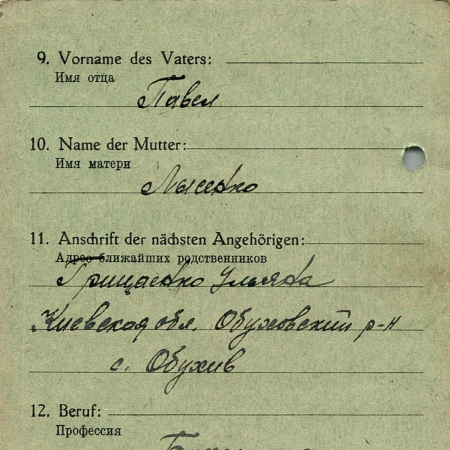 9. Vorname des Vaters:
Имя отца
Павел
10. Name der Mutter:
Имя матери
Лысенко
11. Anschrift der nächsten Angehörigen:
Адрес ближайших родственников
Грищенко Ульяна
Киевская обл. Обуховский р-н
с. Обухив
12. Beruf:
Профессия